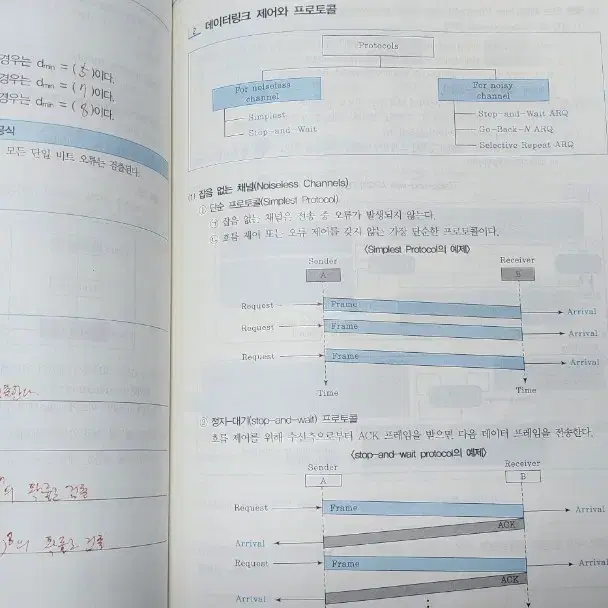 경우는 dmin = ( 5 )이다.
경우는 dmin = ( 7 )이다.
경우는 dmin = ( 8 )이다.
공식
모든 단일 비트 오류는 검출된다.
의 확률로 검출
의 확률로 검출
2. 데이터링크 제어와 프로토콜
Protocols
For noiseless channel
Simplest
Stop-and-Wait
For noisy channel
Stop-and-Wait ARQ
Go-Back-N ARQ
Selective Repeat ARQ
(1) 잡음 없는 채널(Noiseless Channels)
① 단순 프로토콜(Simplest Protocol)
㉠ 잡음 없는 채널은 전송 중 오류가 발생되지 않는다.
㉡ 흐름 제어 또는 오류 제어를 갖지 않는 가장 단순한 프로토콜이다.
〈Simplest Protocol의 예제〉
Sender
Receiver
A
B
Request
Frame
Arrival
Request
Frame
Arrival
Request
Frame
Arrival
Time
Time
② 정지-대기(stop-and-wait) 프로토콜
흐름 제어를 위해 수신측으로부터 ACK 프레임을 받으면 다음 데이터 프레임을 전송한다.
〈stop-and-wait protocol의 예제〉
Sender
Receiver
A
B
Request
Frame
Arrival
ACK
Arrival
Request
Frame
Arrival
ACK
Arrival